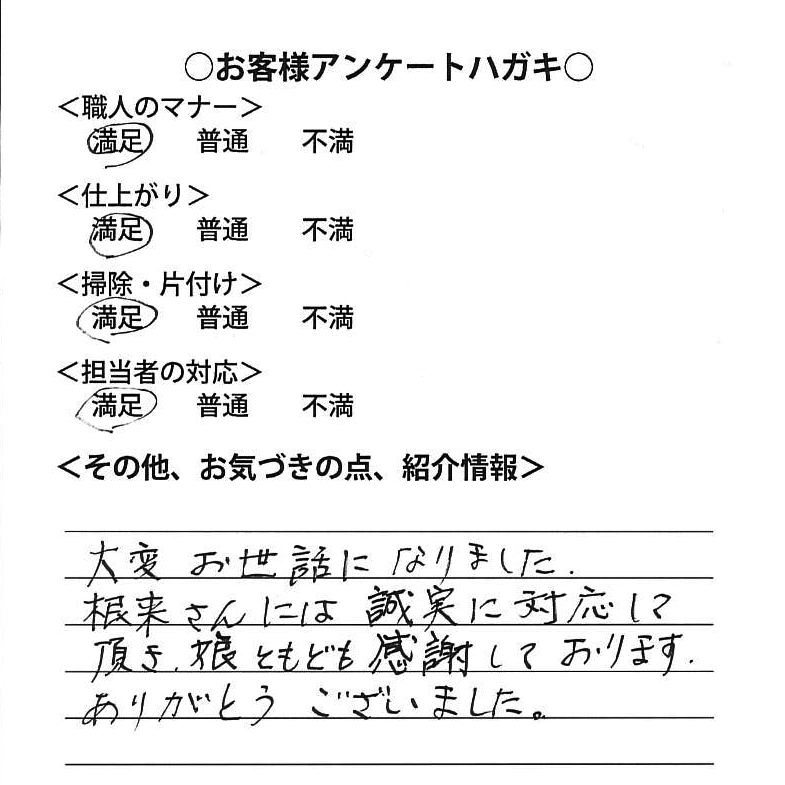 ○お客様アンケートハガキ○
＜職人のマナー＞
満足 普通 不満
＜仕上がり＞
満足 普通 不満
＜掃除・片付け＞
満足 普通 不満
＜担当者の対応＞
満足 普通 不満
＜その他、お気づきの点、紹介情報＞
大変 お世話に なりました.
根来さんには 誠実に 対応して
頂き、娘ともども 感謝して おります.
ありがとう ございました。